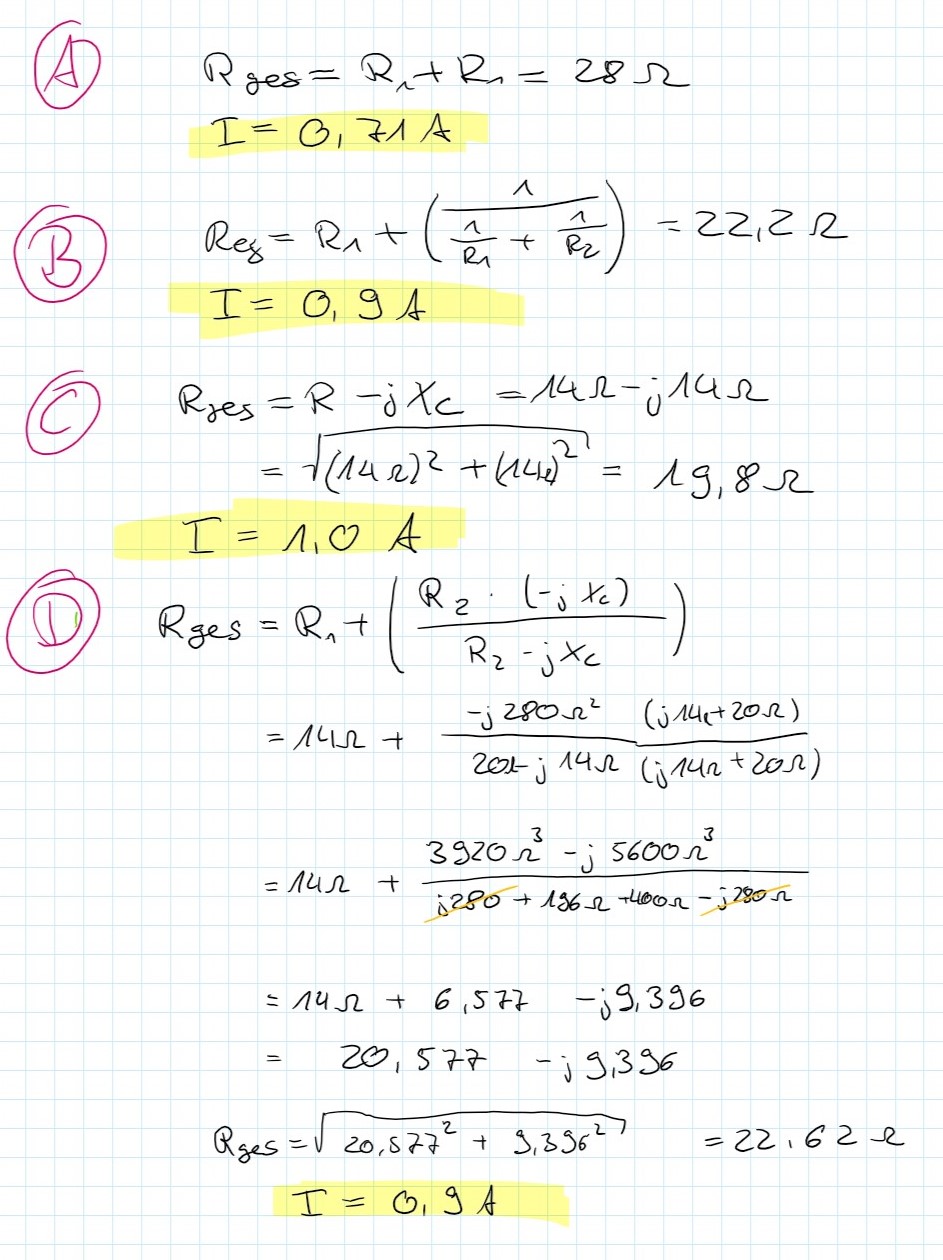 A
R ges = R₁ + R₁ = 28 Ω
I = 0,71 A
B
Reg = R1 + (1 / (1/R1 + 1/R2)) = 22,2 Ω
I = 0,9 A
C
Rges = R - jXc = 14Ω - j14Ω
= √((14Ω)² + (14Ω)²) = 19,8 Ω
I = 1,0 A
D
Rges = R₁ + (R₂ · (-j Xc) / (R₂ - jXc))
= 14Ω + (-j 280Ω² / (20Ω - j 14Ω)) (j14Ω + 20Ω) / (j14Ω + 20Ω)
= 14Ω + (3920Ω³ - j 5600Ω³) / (j280 + 196Ω + 400Ω - j280Ω)
= 14Ω + 6,577 - j9,396
= 20,577 - j9,396
Rges = √(20,577² + 9,396²) = 22.62 Ω
I = 0,9 A